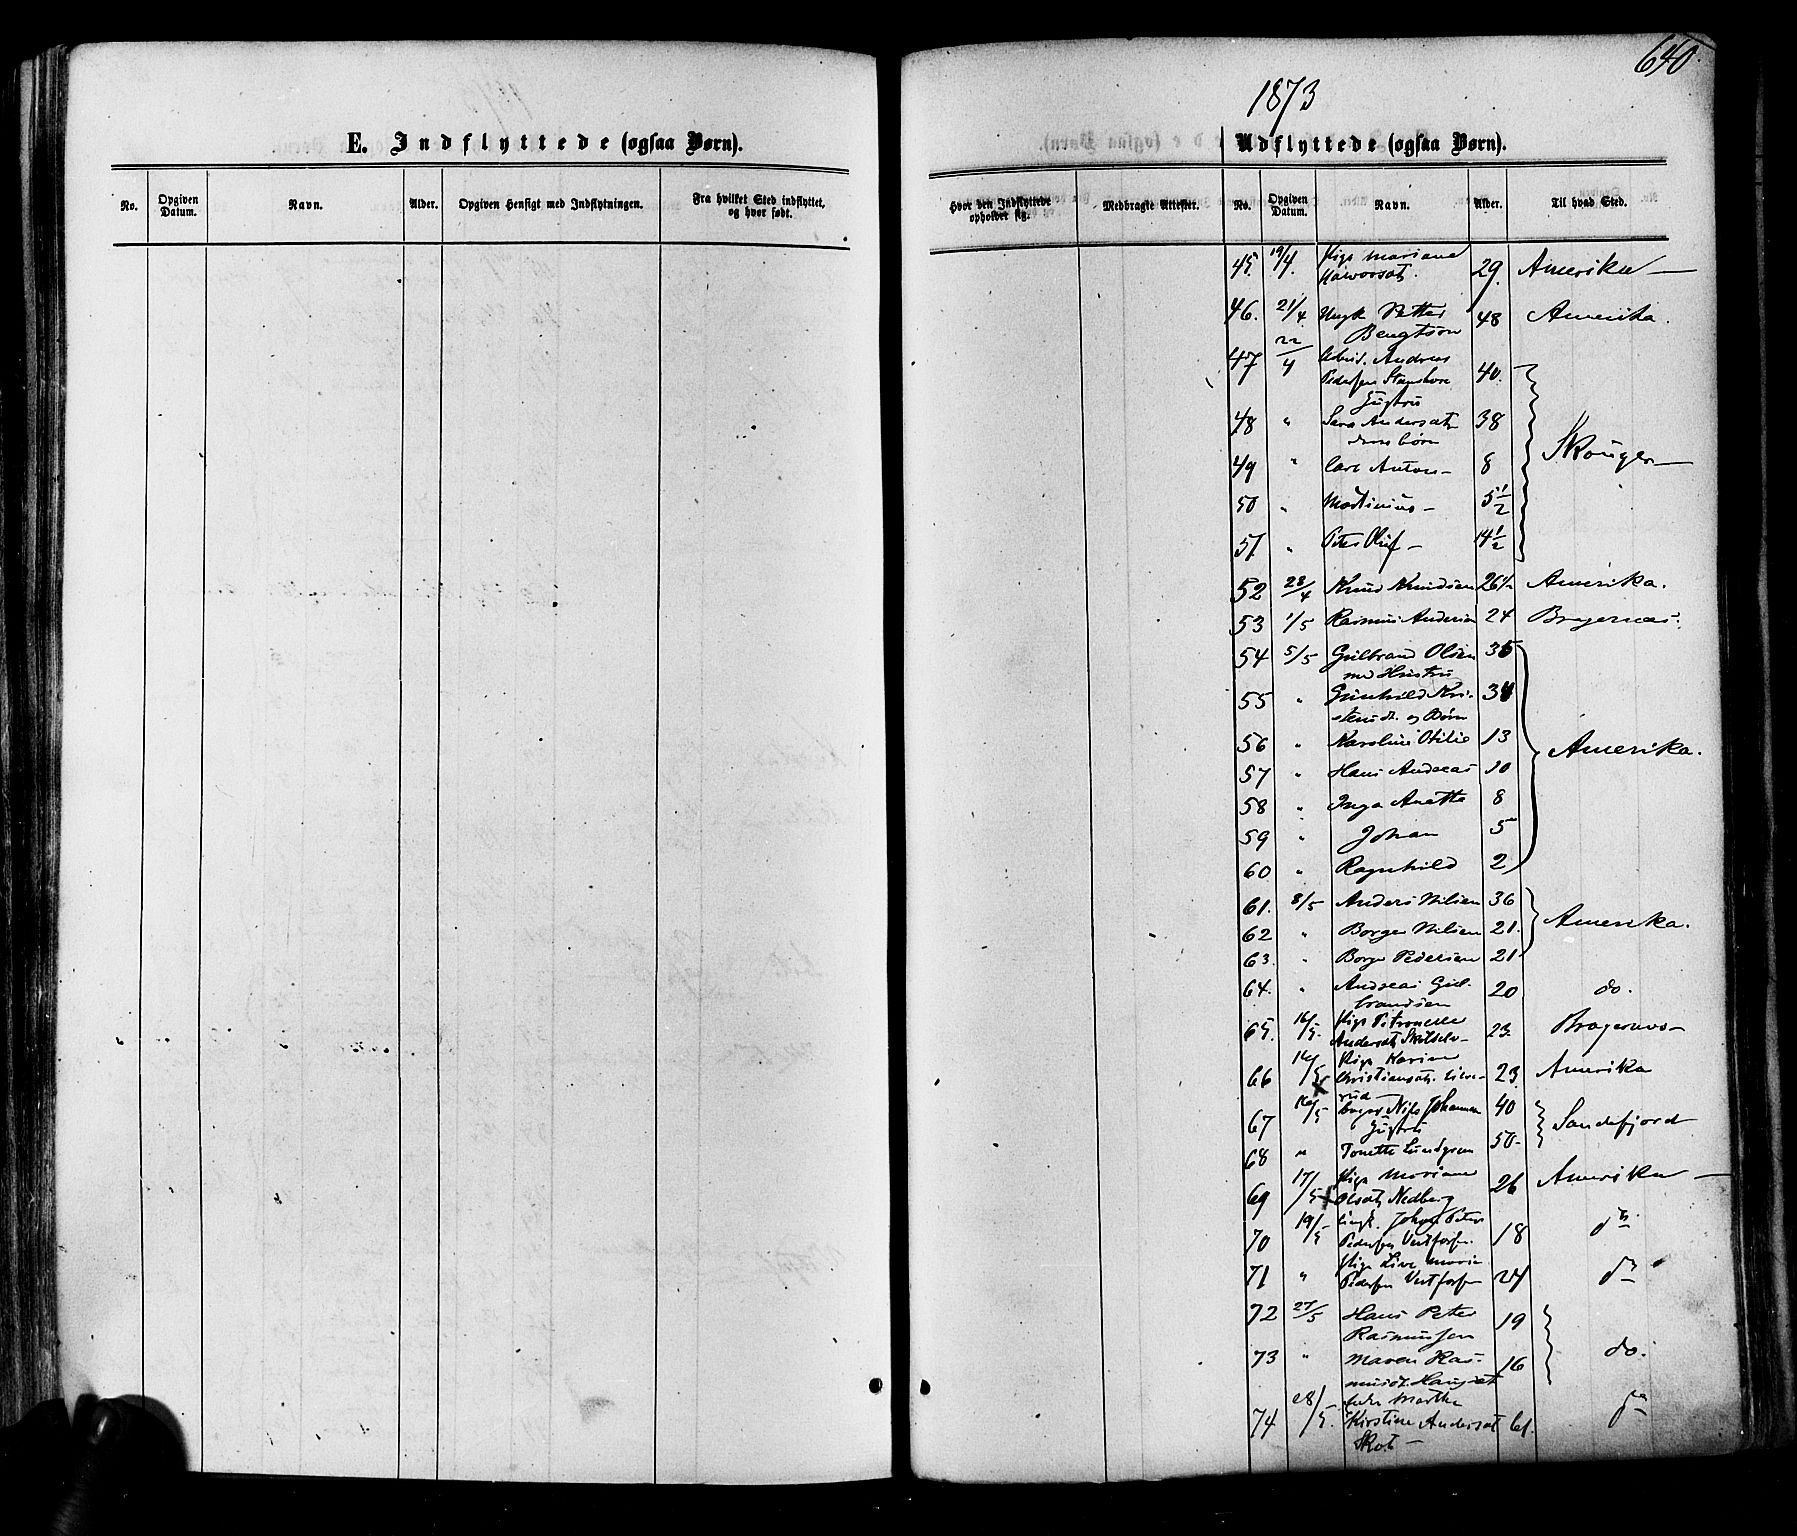 640.
1873
E. Indflyttede (ogsaa Børn).
Udflyttede (ogsaa Børn).
No. Opgiven Datum. Navn. Alder. Opgiven Hensigt med Indflytningen. Fra hvilket Sted indflyttet, og hvor født.
Hvor den Indflyttede opholder sig. Medbragte Attester. No. Opgiven Datum. Navn. Alder. Til hvad Sted.
45. 19/4. Pige Mariane
29. Amerika —
46. 21/4 Petter
Bengtson 48 Amerika.
47 22/4 Andreas
Pedersen 40.
Hustru
48 " Sara Andersdt 38
deres børn
Skouger —
49 " Carl Anton — 8
50 " Martinius — 5 1/2
51 " Peter Oluf — 14 1/2
52 28/4 Knud Knudsen 26 Amerika.
53 1/5 Rasmus Andersen 24 Bragernæs.
54 5/5 Gulbrand Olsen 35
med Hustru
55 " Gunhild Kri- 34
stensdt. og Børn
56 " Karoline Otilie 13
Amerika.
57 " Hans Andreas 10
58 " Inga Anette 8
59 " Johan 5
60 " Ragnhild 2
61. 8/5 Anders Nilsen 36
Amerika.
62 " Borger Nilsen 21.
63. " Borge Pedersen 21
64. " Andreas Gul- 20 do.
brandsen
65. 16/5. Pige Petronelle
Andersdt 23. Bragernes —
66 16/5 Pige Karen
Christiansdt. 23. Amerika
rud —
67 16/5 Nils Johannes 40
Hustru
Sandefjord
68 " Tonette 50 —
69 17/5 Pige Mariane
Olsdt Nedberg 26 Amerika —
70 19/5 Ungk. Johan Peter
Pedersen Vestfossen. 18 do
71 " Pige Live Marie
Pedersen Vestfossen 24 do
72 27/5 Hans Peter 19
Rasmussen
do.
73 " Maren Ras- 16
musdt. Haugset
74 28/5. Enke Marthe
Kirstine Andersdt 61. do
Skot —